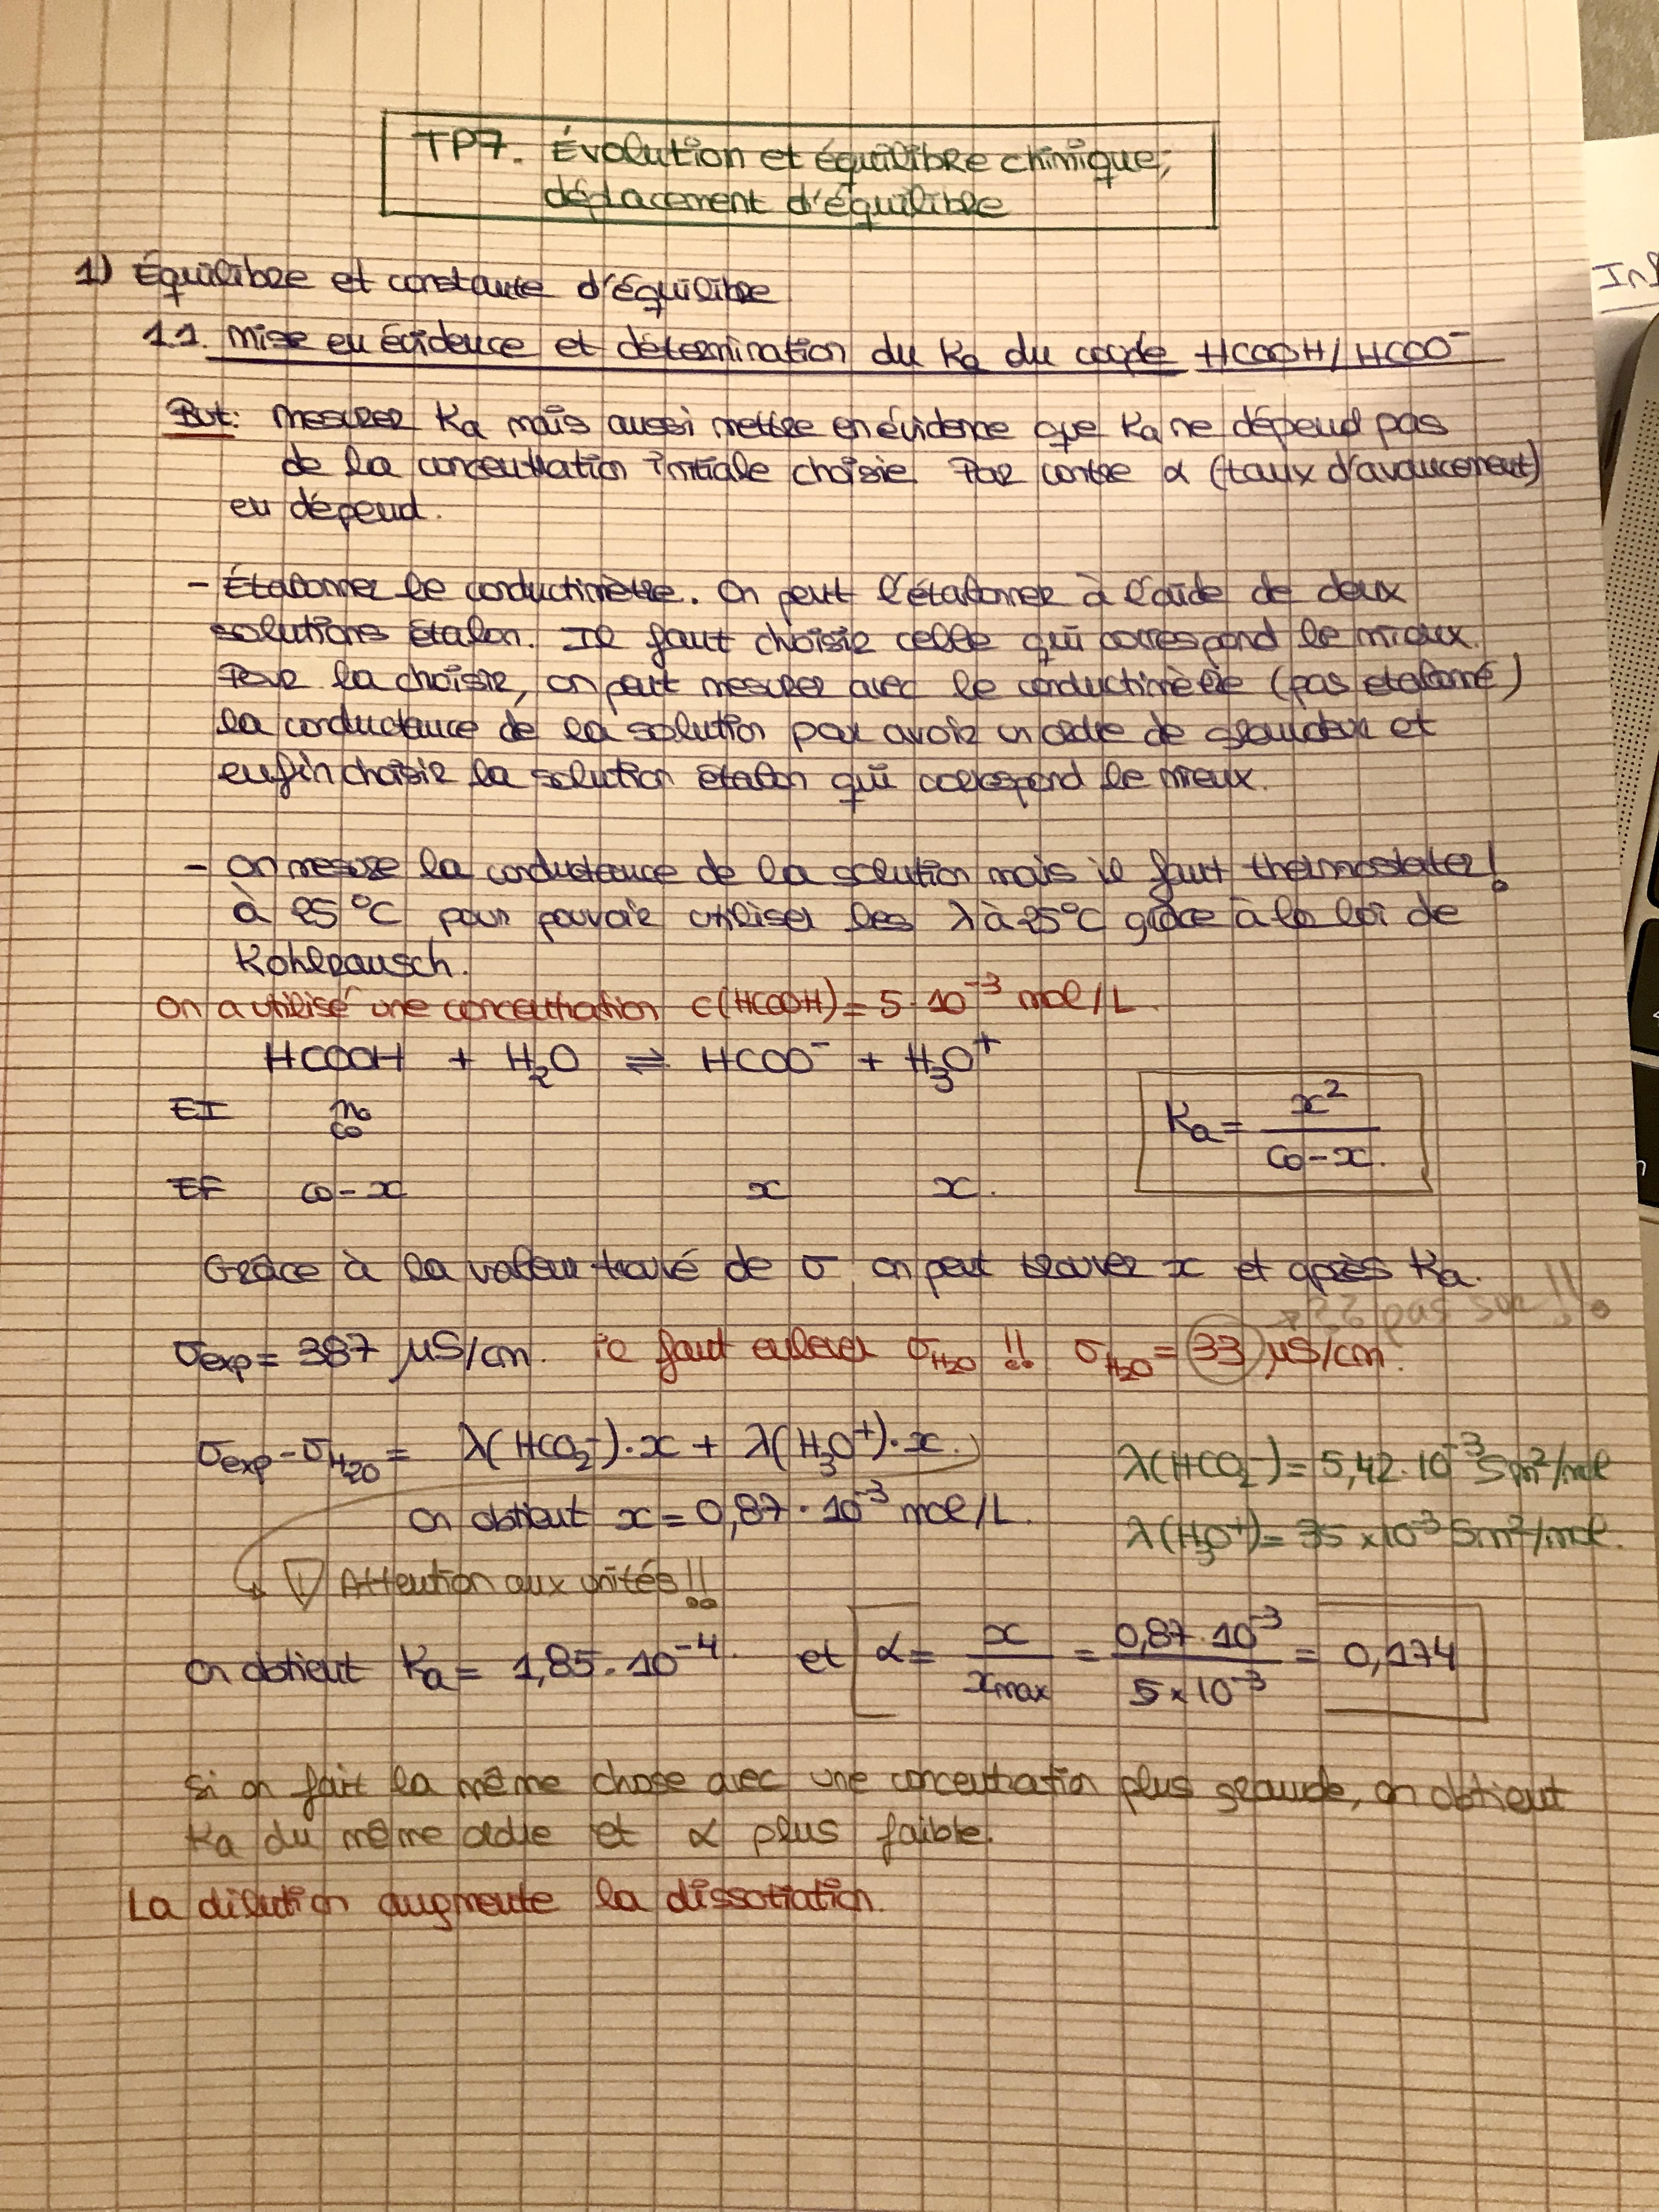 TP7. Évolution et équilibre chimique,
déplacement d'équilibre
1) Équilibre et constante d'équilibre
1.1. Mise en évidence et détermination du Ka du couple HCOOH/HCOO⁻
But: Mesurer Ka mais aussi mettre en évidence que Ka ne dépend pas
de la concentration initiale choisie. Par contre α (taux d'avancement)
en dépend.
- Étalonner le conductimètre. On peut l'étalonner à l'aide de deux
solutions étalon. Il faut choisir celle qui correspond le mieux.
Pour la choisir, on peut mesurer avec le conductimètre (pas etalonné)
la conductance de la solution pour avoir un ordre de grandeur et
enfin choisir la solution étalon qui correspond le mieux.
- On mesure la conductance de la solution mais il faut thermostater!
à 25°C pour pouvoir utiliser les λ à 25°C grâce à la loi de
Kohlrausch.
On a utilisé une concentration c(HCOOH) = 5·10⁻³ mol/L.
HCOOH + H₂O ⇌ HCOO⁻ + H₃O⁺
EI n₀
c₀
Ka = x²/(c₀-x).
EF c₀-x x x.
Grâce à la valeur trouvé de σ on peut trouver x et après Ka.
→ ?? pas sur!!
σexp = 387 μS/cm. il faut enlever σH₂O !! σH₂O = 33 μS/cm.
σexp - σH₂O = λ(HCO₂⁻)·x + λ(H₃O⁺)·x. λ(HCO₂⁻) = 5,42·10⁻³ Sm²/mol
on obtient x = 0,87·10⁻³ mol/L. λ(H₃O⁺) = 35×10⁻³ Sm²/mol.
! Attention aux unités!!
on obtient Ka = 1,85·10⁻⁴. et α = x/xmax = 0,87·10⁻³/5×10⁻³ = 0,174
Si on fait la même chose avec une concentration plus grande, on obtient
Ka du même ordre et α plus faible.
La dilution augmente la dissotiation.